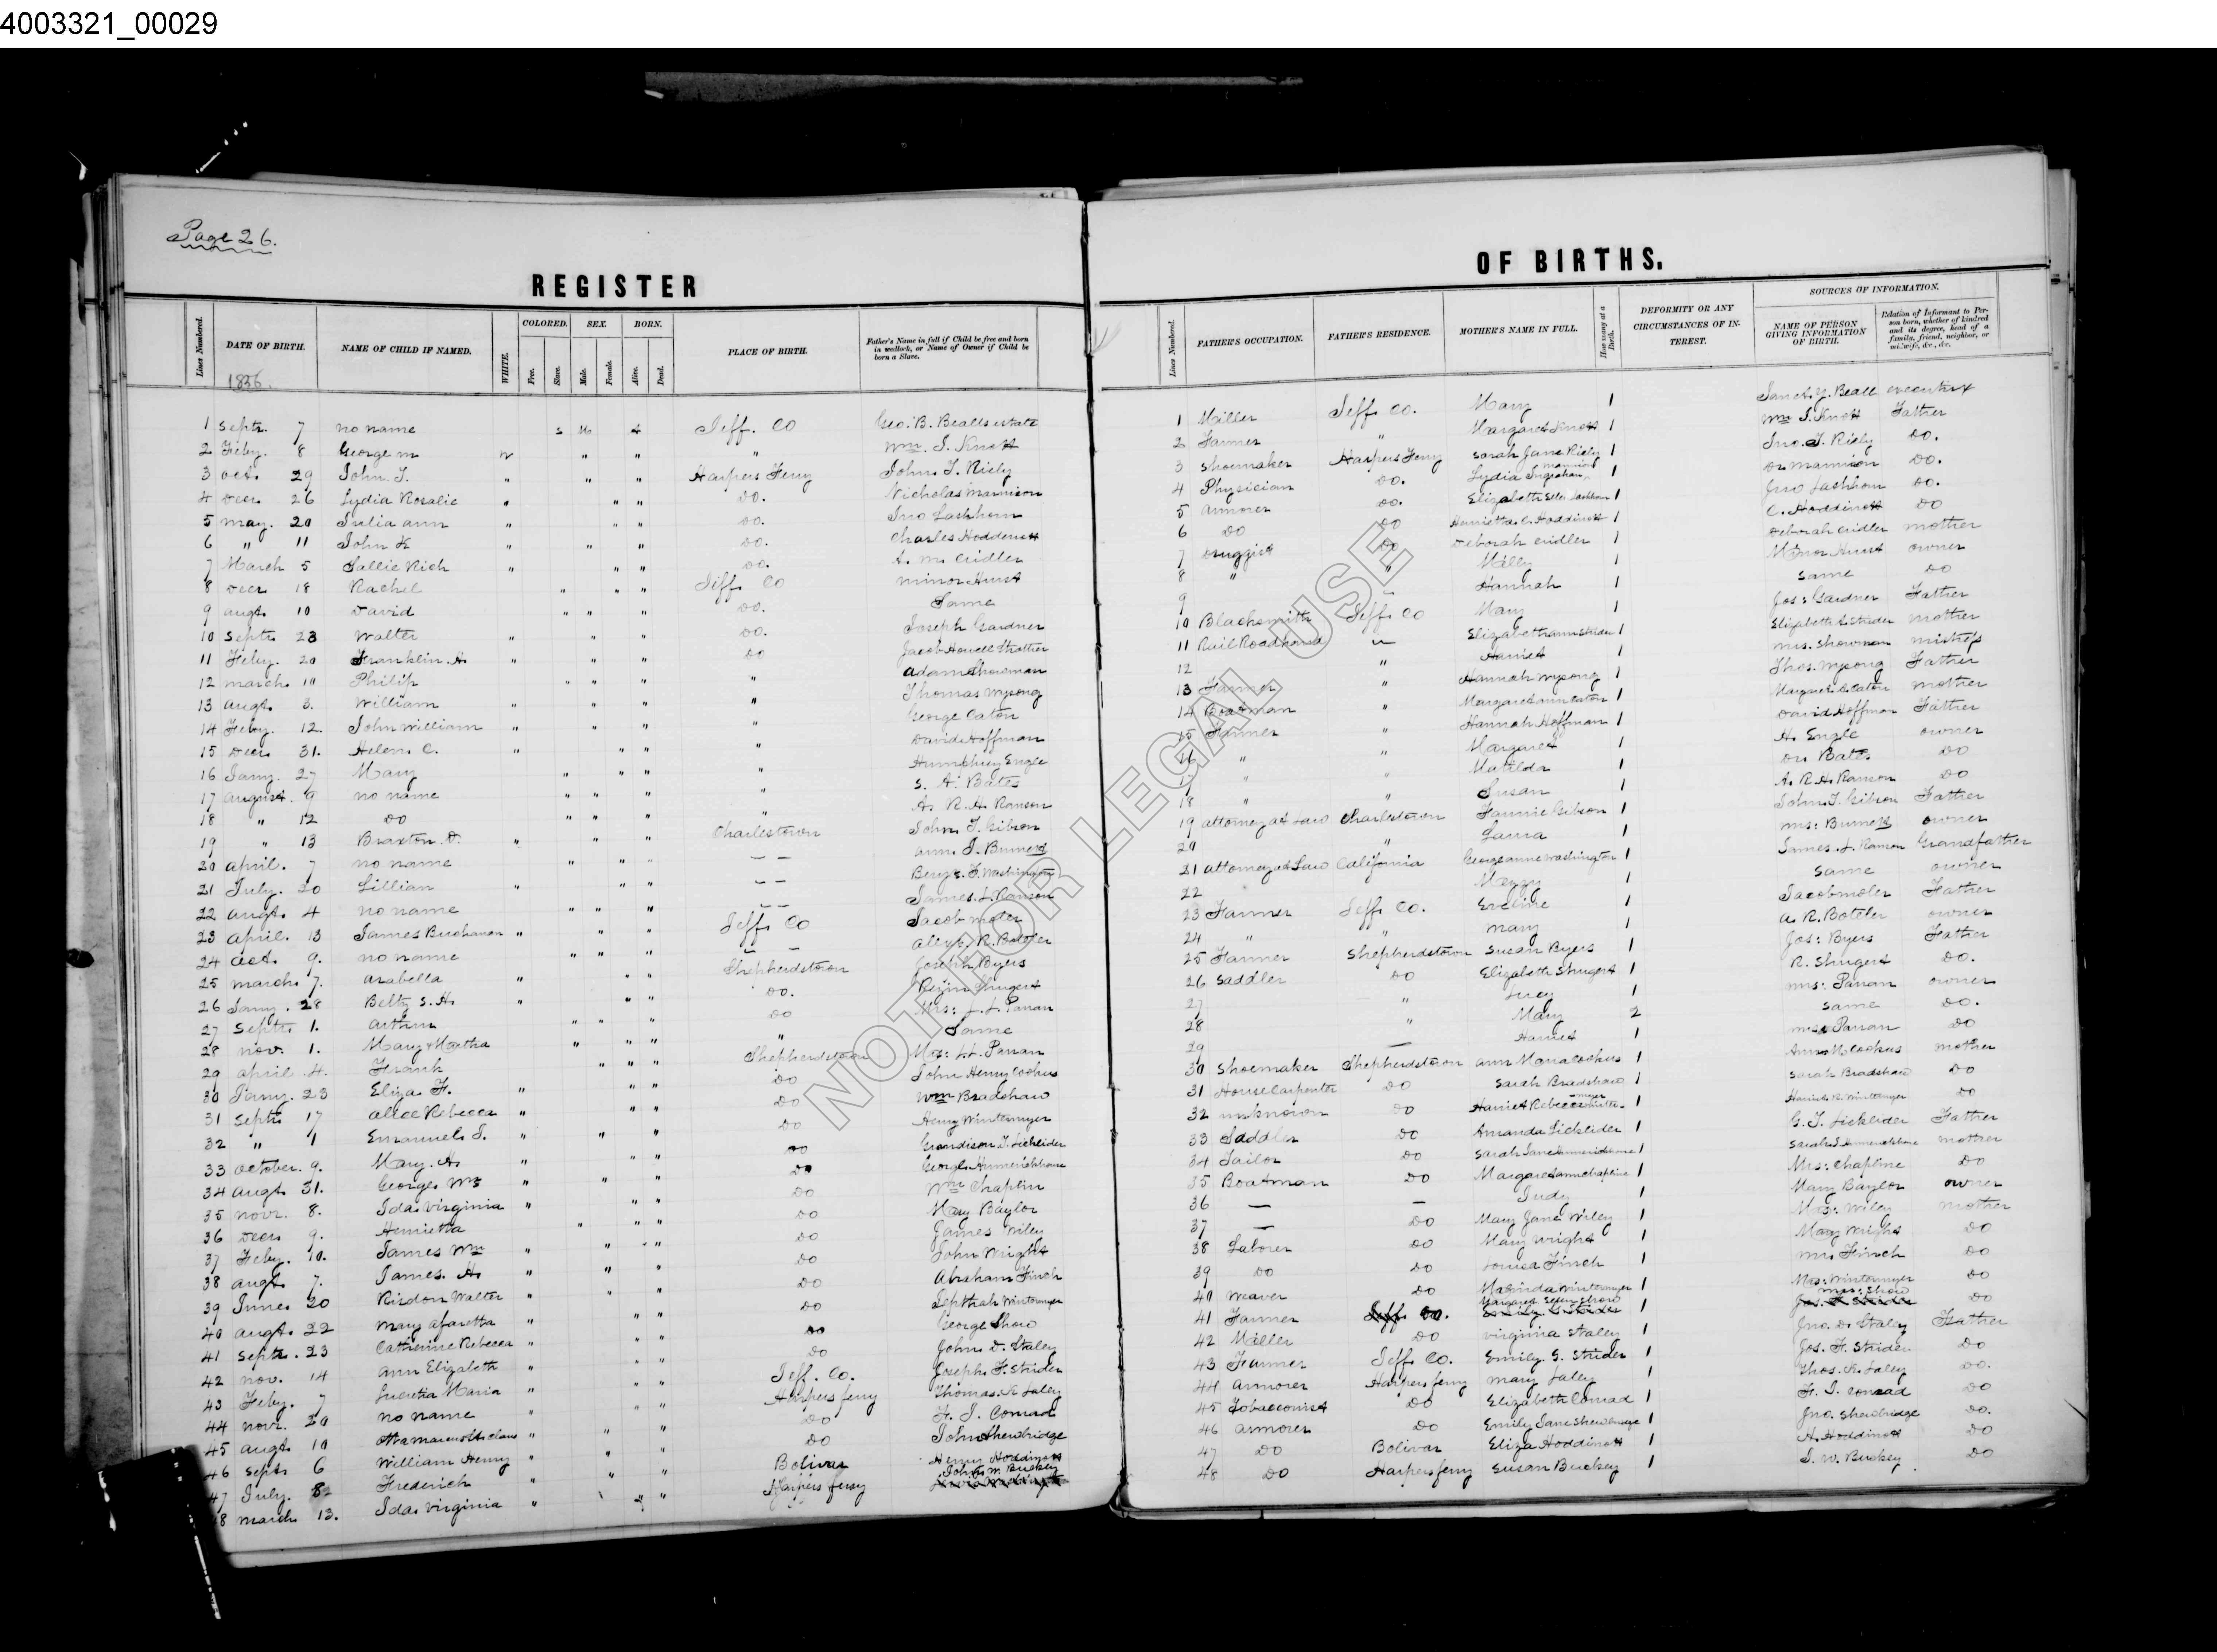 4003321_00029
Page 26.
REGISTER
OF BIRTHS.
Lines Numbered. DATE OF BIRTH. NAME OF CHILD IF NAMED. WHITE. COLORED. Free. Slave. SEX. Male. Female. BORN. Alive. Dead. PLACE OF BIRTH. Father's Name in full if Child be free and born in wedlock, or Name of Owner if Child be born a Slave.
Lines Numbered. FATHER'S OCCUPATION. FATHER'S RESIDENCE. MOTHER'S NAME IN FULL. How many at a Birth. DEFORMITY OR ANY CIRCUMSTANCES OF INTEREST. SOURCES OF INFORMATION. NAME OF PERSON GIVING INFORMATION OF BIRTH. Relation of Informant to Person born, whether of kindred and its degree, head of a family, friend, neighbor, or midwife, &c., &c.
1856
1 Septr. 7 no name S M Jeff. Co Geo. B. Bealls estate
2 Feby. 8 George m W " " " Wm. I. Knott
3 oct. 29 John. T. " " " Harpers Ferry John. T. Riely
4 Decr 26 Lydia Rosalie " " " Do. Nicholas Marmion
5 may. 20 Julia ann " " " Do. Jno Lashhorn
6 " 11 John K " " " Do. Charles Hoddinott
7 March 5 Sallie Rich " " " Do. A. m. Cridler
8 Decr 18 Rachel " " " Jeff. Co minor Hurst
9 augt. 10 David " " " Do. Same
10 Septr 23 Walter " " " Do. Joseph Gardner
11 Feby. 20 Franklin. H. " " " Do
12 march. 11 Philip " " " " Adam Showman
13 augt. 3. William " " " " Thomas Wysong
14 Feby. 12. John William " " " " George Eaton
15 Decr 31. Helen. C. " " " " David Hoffman
16 Jany. 27 Mary " " " " Humphrey Engle
17 august. 9 no name " " " " S. A. Bates
18 " 12 Do " " " " A. R. H. Ranson
19 " 13 Braxton. D. " " " Charlestown John. T. Gibson
20 april. 7 no name " " " — — ann. I.
21 July. 20 Lillian " " " — — Benj. F. Washington
22 augt. 4 no name " " " — — James. L. Ranson
23 april. 13 James Buchanan " " " Jeff. Co Jacob Moler
24 Oct. 9. no name " " " — — Alex. R. Boteler
25 march. 7. Arabella " " " Shepherdstown Joseph Byers
26 Jany. 28 Beltz S. H. " " " Do. Rezin Shugert
27 Septr. 1. Arthur " " " Do Mrs: L. L. Panan
28 nov. 1. Mary & Martha " " " " Same
29 april. 4. Frank " " " Shepherdstown Mrs: L.L. Panan
30 Jany. 23 Eliza F. " " " Do John Henry Cookus
31 Septr. 17 Alice Rebecca " " " Do Wm Bradshaw
32 " 1 Emanuel. S. " " " Do Henry Wintermyer
33 october. 9. Mary. A. " " " Do Grandison T. Licklider
34 augt. 31. George Wm " " " Do
35 novr. 8. Ida. Virginia " " " Do Wm Chaplin
36 Decr 9. Henrietta " " " Do Mary Baylor
37 Feby. 10. James Wm " " " Do James Wiley
38 augt. 7. James. H. " " " Do John Wright
39 June. 20 Risdon Walter " " " Do Abraham Finch
40 augt. 22 Mary Afaretta " " " Do Wintermyer
41 Septr. 23 Catherine Rebecca " " " Do George Show
42 nov. 14 Ann Elizabeth " " " Do John. D. Staley
43 Feby. 7 Lucretia Maria " " " Jeff. Co. Joseph. F. Strider
44 novr. 20 no name " " " Harpers ferry Thomas. K Laley
45 augt. 10 " " " Do F. I. Conrad
46 Septr 6 William Henry " " " Do John Shewbridge
47 July. 8 Frederick " " " Bolivar Henry Hoddinott
48 march. 13. Ida. Virginia " " " Harpers ferry John. W. Buckey
1 Miller Jeff. Co. Mary 1 Beall executrix
2 Farmer " Margaret Knott 1 Wm I. Knott Father
3 Shoemaker Harpers Ferry Sarah Jane Riely 1 Jno. T. Riely Do.
4 Physician Do. Lydia Ingraham Marmion 1 Dr Marmion Do.
5 armorer Do. Elizabeth Ellen Lashhorn 1 Jno Lashhorn Do.
6 Do Do Henrietta. C. Hoddinott 1 C. Hoddinott Do
7 Druggist Do Deborah Cridler 1 Deborah Cridler mother
8 " " Milly 1 Minor Hurst owner
9 — Hannah 1 Same Do
10 Blacksmith Jeff. Co Mary 1 Jos: Gardner Father
11 Rail Road hand — Elizabeth ann Strider 1 Elizabeth A. Strider mother
12 " Harriet 1 mrs. Showman mistress
13 Farmer " Hannah Wysong 1 Thos. Wysong Father
14 Boatman " Margaret ann Eaton 1 Margaret A. Eaton mother
15 Farmer " Hannah Hoffman 1 David Hoffman Father
16 " " Margaret 1 H. Engle owner
17 " " Matilda 1 Dr. Bates Do
18 " " Susan 1 A. R. H. Ranson Do
19 attorney at Law Charlestown Fannie Gibson 1 John. T. Gibson Father
20 " Laura 1 owner
21 attorney at Law California Georgeanne Washington 1 James. L. Ranson Grandfather
22 Mazzy 1 Same owner
23 Farmer Jeff. Co. Eveline 1 Jacob Moler Father
24 " " Mary 1 A. R. Boteler owner
25 Farmer Shepherdstown Susan Byers 1 Jos: Byers Father
26 Saddler Do Elizabeth Shugert 1 R. Shugert Do.
27 " Lucy 1 mrs: Panan owner
28 " Mary 2 Same Do.
29 — Harriet 1 mrs Panan Do
30 Shoemaker Shepherdstown Ann Maria Cookus 1 Ann M. Cookus mother
31 House Carpenter Do Sarah Bradshaw 1 Sarah Bradshaw Do
32 unknown Do Harriet Rebecca Wintermyer 1 Harriet R. Wintermyer Do
33 Saddler Do Amanda Licklider 1 G. T. Licklider Father
34 Tailor Do Sarah Jane 1 mother
35 Boatman Do Margaret ann Chapline 1 Mrs: Chapline Do
36 — — Judy 1 Mary Baylor owner
37 — Do Mary Jane Wiley 1 Mrs: Wiley mother
38 Laborer Do Mary Wright 1 Mary Wright Do
39 Do Do Louisa Finch 1 mrs Finch Do
40 Weaver Do Malinda Wintermyer 1 Mrs: Wintermyer Do
41 Farmer Jeff. Co. Margaret Ellen Show 1 Mrs: Show Do
42 Miller Do Virginia Staley 1 Jno. D. Staley Father
43 Farmer Jeff. Co. Emily. G. Strider 1 Jos. F. Strider Do
44 Armorer Harpers ferry Mary Laley 1 Thos. K. Laley Do.
45 Tobacconist Do Elizabeth Conrad 1 F. I. Conrad Do
46 Armorer Do Emily Jane Shewbridge 1 Jno. Shewbridge Do.
47 Do Bolivar Eliza Hoddinott 1 H. Hoddinott Do
48 Do Harpers ferry Susan Buckey 1 J. W. Buckey Do
NOT FOR LEGAL USE